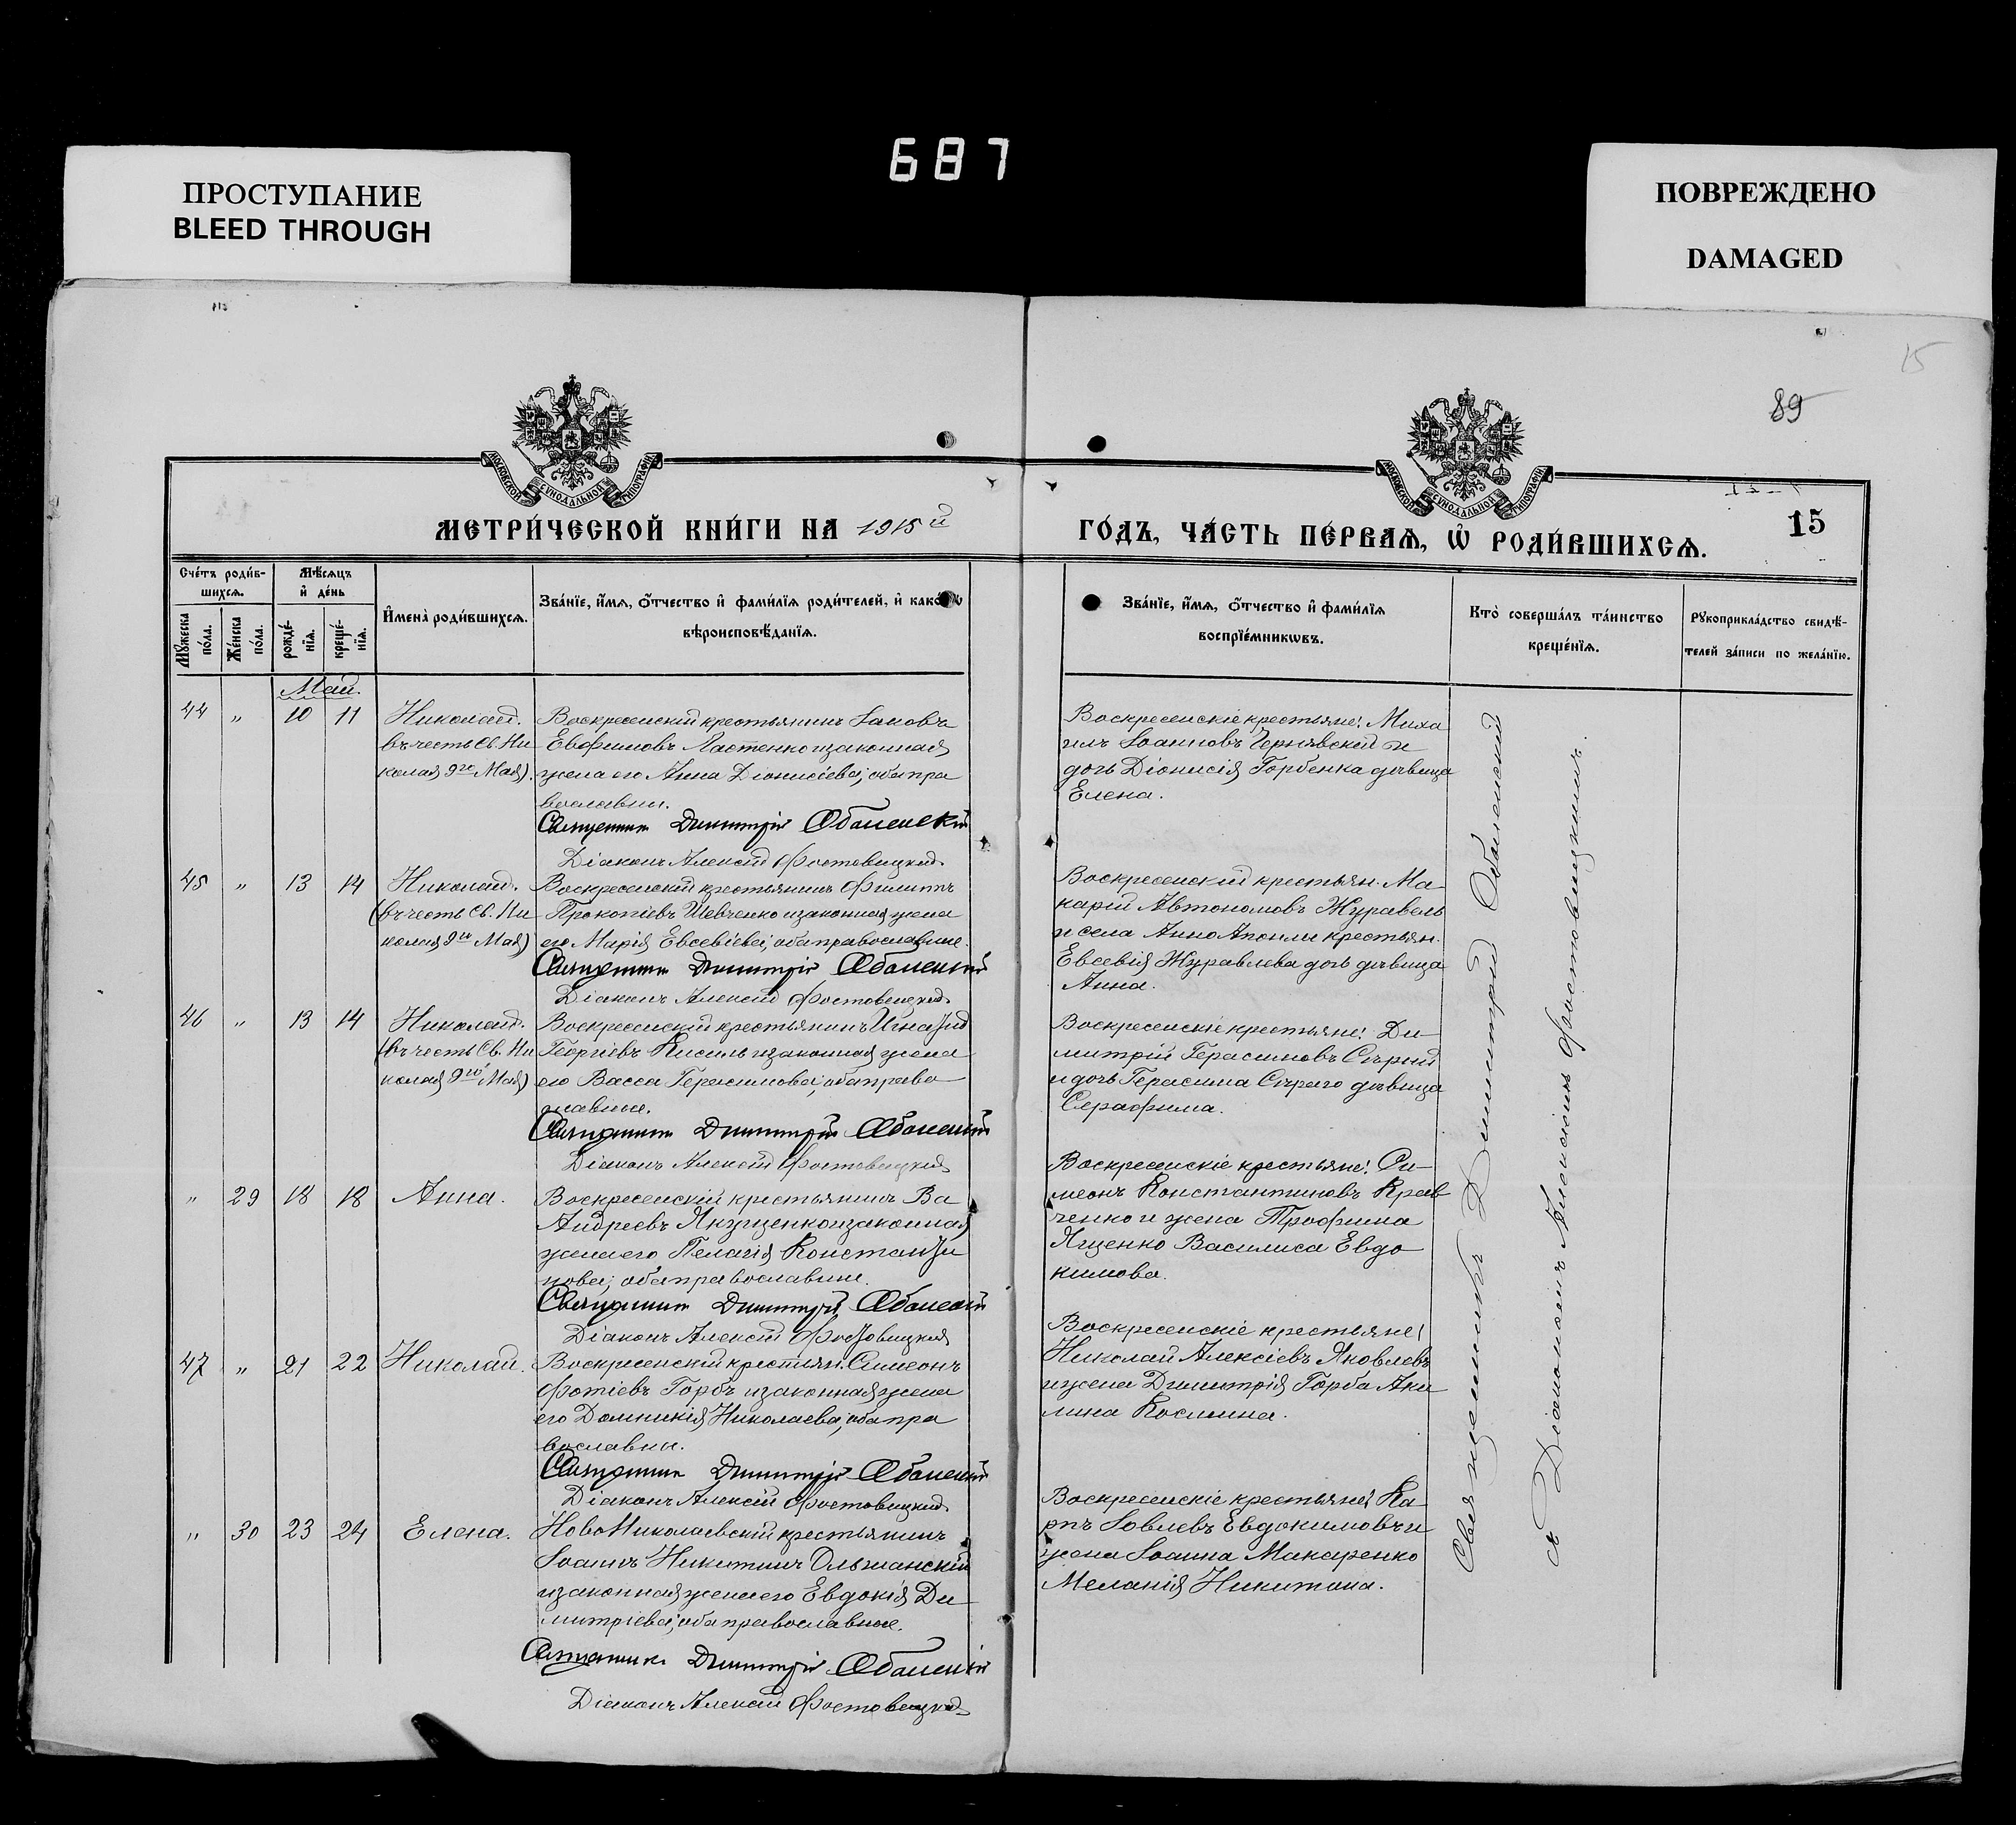 687
ПРОСТУПАНИЕ
BLEED THROUGH
ПОВРЕЖДЕНО
DAMAGED
15
89
МОСКОВСКОЙ СѴНОДАЛЬНОЙ ТИПОГРАФІИ
МОСКОВСКОЙ СѴНОДАЛЬНОЙ ТИПОГРАФІИ
МЕТРИ́ЧЕСКОЙ КНИ́ГИ НА 1915й
ГО́ДЪ, ЧА́СТЬ ПЕ́РВАѦ, Ѽ РОДИ́ВШИХСѦ.
15
Сче́тъ роди́в-
шихсѧ.
Мѣ́сѧцъ
и҆ де́нь
Мꙋ́жеска по́ла.
Же́нска по́ла.
рожде́-нїѧ.
креще́-нїѧ.
И҆мена̀ роди́вшихсѧ.
Зва́нїе, и҆́мѧ, ѻ҆́тчество и҆ фами́лїѧ роди́телей, и҆ како́гѡ
вѣроисповѣ́данїѧ.
Зва́нїе, и҆́мѧ, ѻ҆́тчество и҆ фами́лїѧ
воспрїе́мникѡвъ.
Кто̀ соверша́лъ та́инство
креще́нїѧ.
Рꙋкоприкла́дство свидѣ́-
телей за́писи по жела́нїю.
Май.
44 „ 10 11 Николай.
въ честь Св. Ни
колая 9го Мая).
Воскресенскій крестьянинъ Іаковъ
Евфимовъ Ластенко и законная
жена его Анна Діонисіева; оба пра
вославны.
Священникъ Димитрій Оболенскій
Діаконъ Алексій Фостовицкій
Воскресенскіе крестьяне: Миха
илъ Іоанновъ Чернявскій и
дочь Діонисія Горбенка дѣвица
Елена.
45 „ 13 14 Николай.
(въ честь Св. Ни
колая 9го Мая)
Воскресенскій крестьянинъ Филиппъ
Прокопіевъ Шевченко и законная жена
его Марія Евсевіева; оба православные.
Священникъ Димитрій Оболенскій
Діаконъ Алексій Фостовицкій
Воскресенскій крестьян. Ма-
карій Автономовъ Журавель
и села Анно крестьян.
Евсевія Журавлева дочь дѣвица
Анна.
46 „ 13 14 Николай.
(въ честь Св. Ни
колая 9го Мая)
Воскресенскій крестьянинъ Игнатій
Георгіевъ Кисиль и законная жена
его Васса Герасимова; оба право-
славные.
Священникъ Димитрій Оболенскій
Діаконъ Алексій Фостовицкій
Воскресенскіе крестьяне: Ди-
митрій Герасимовъ Сѣрый
и дочь Герасима Сѣраго дѣвица
Серафима.
„ 29 18 18 Анна.
Воскресенскій крестьянинъ Ва
Андреевъ Якущенко и законная
жена его Пелагія Константи
нова; оба православные.
Священникъ Димитрій Оболенскій
Діаконъ Алексій Фостовицкій
Воскресенскіе крестьяне: Си-
меонъ Константиновъ Крав
ченко и жена Трофима
Ященко Василиса Евдо
кимова.
47 „ 21 22 Николай.
Воскресенскій крестьян. Симеонъ
Фотіевъ Горбъ и законная жена
его Домникія Николаева; оба пра
вославны.
Священникъ Димитрій Оболенскій
Діаконъ Алексій Фостовицкій
Воскресенскіе крестьяне:
Николай Алексіевъ Яковлевъ
и жена Димитрія Горба Аки
лина Косьмина.
„ 30 23 24 Елена.
Ново Николаевскій крестьянинъ
Іоаннъ Никитинъ Ольшанскій
и законная жена его Евдокія Ди
митріева; оба православные.
Священникъ Димитрій Оболенскій
Діаконъ Алексій Фостовицкій
Воскресенскіе крестьяне: Ка-
рпъ Іовлевъ Евдокимовъ и
жена Іоанна Макаренко
Меланія Никитина.
Священникъ Димитрій Оболенскій
съ Діакономъ Алексіемъ Фостовицкимъ.